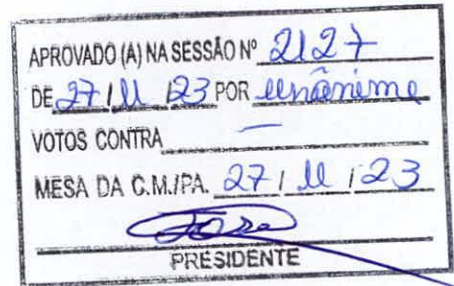 APROVADO (A) NA SESSÃO Nº 2127
DE 27 / 11 / 23 POR unânime
VOTOS CONTRA —
MESA DA C.M./PA. 27 / 11 / 23
PRESIDENTE